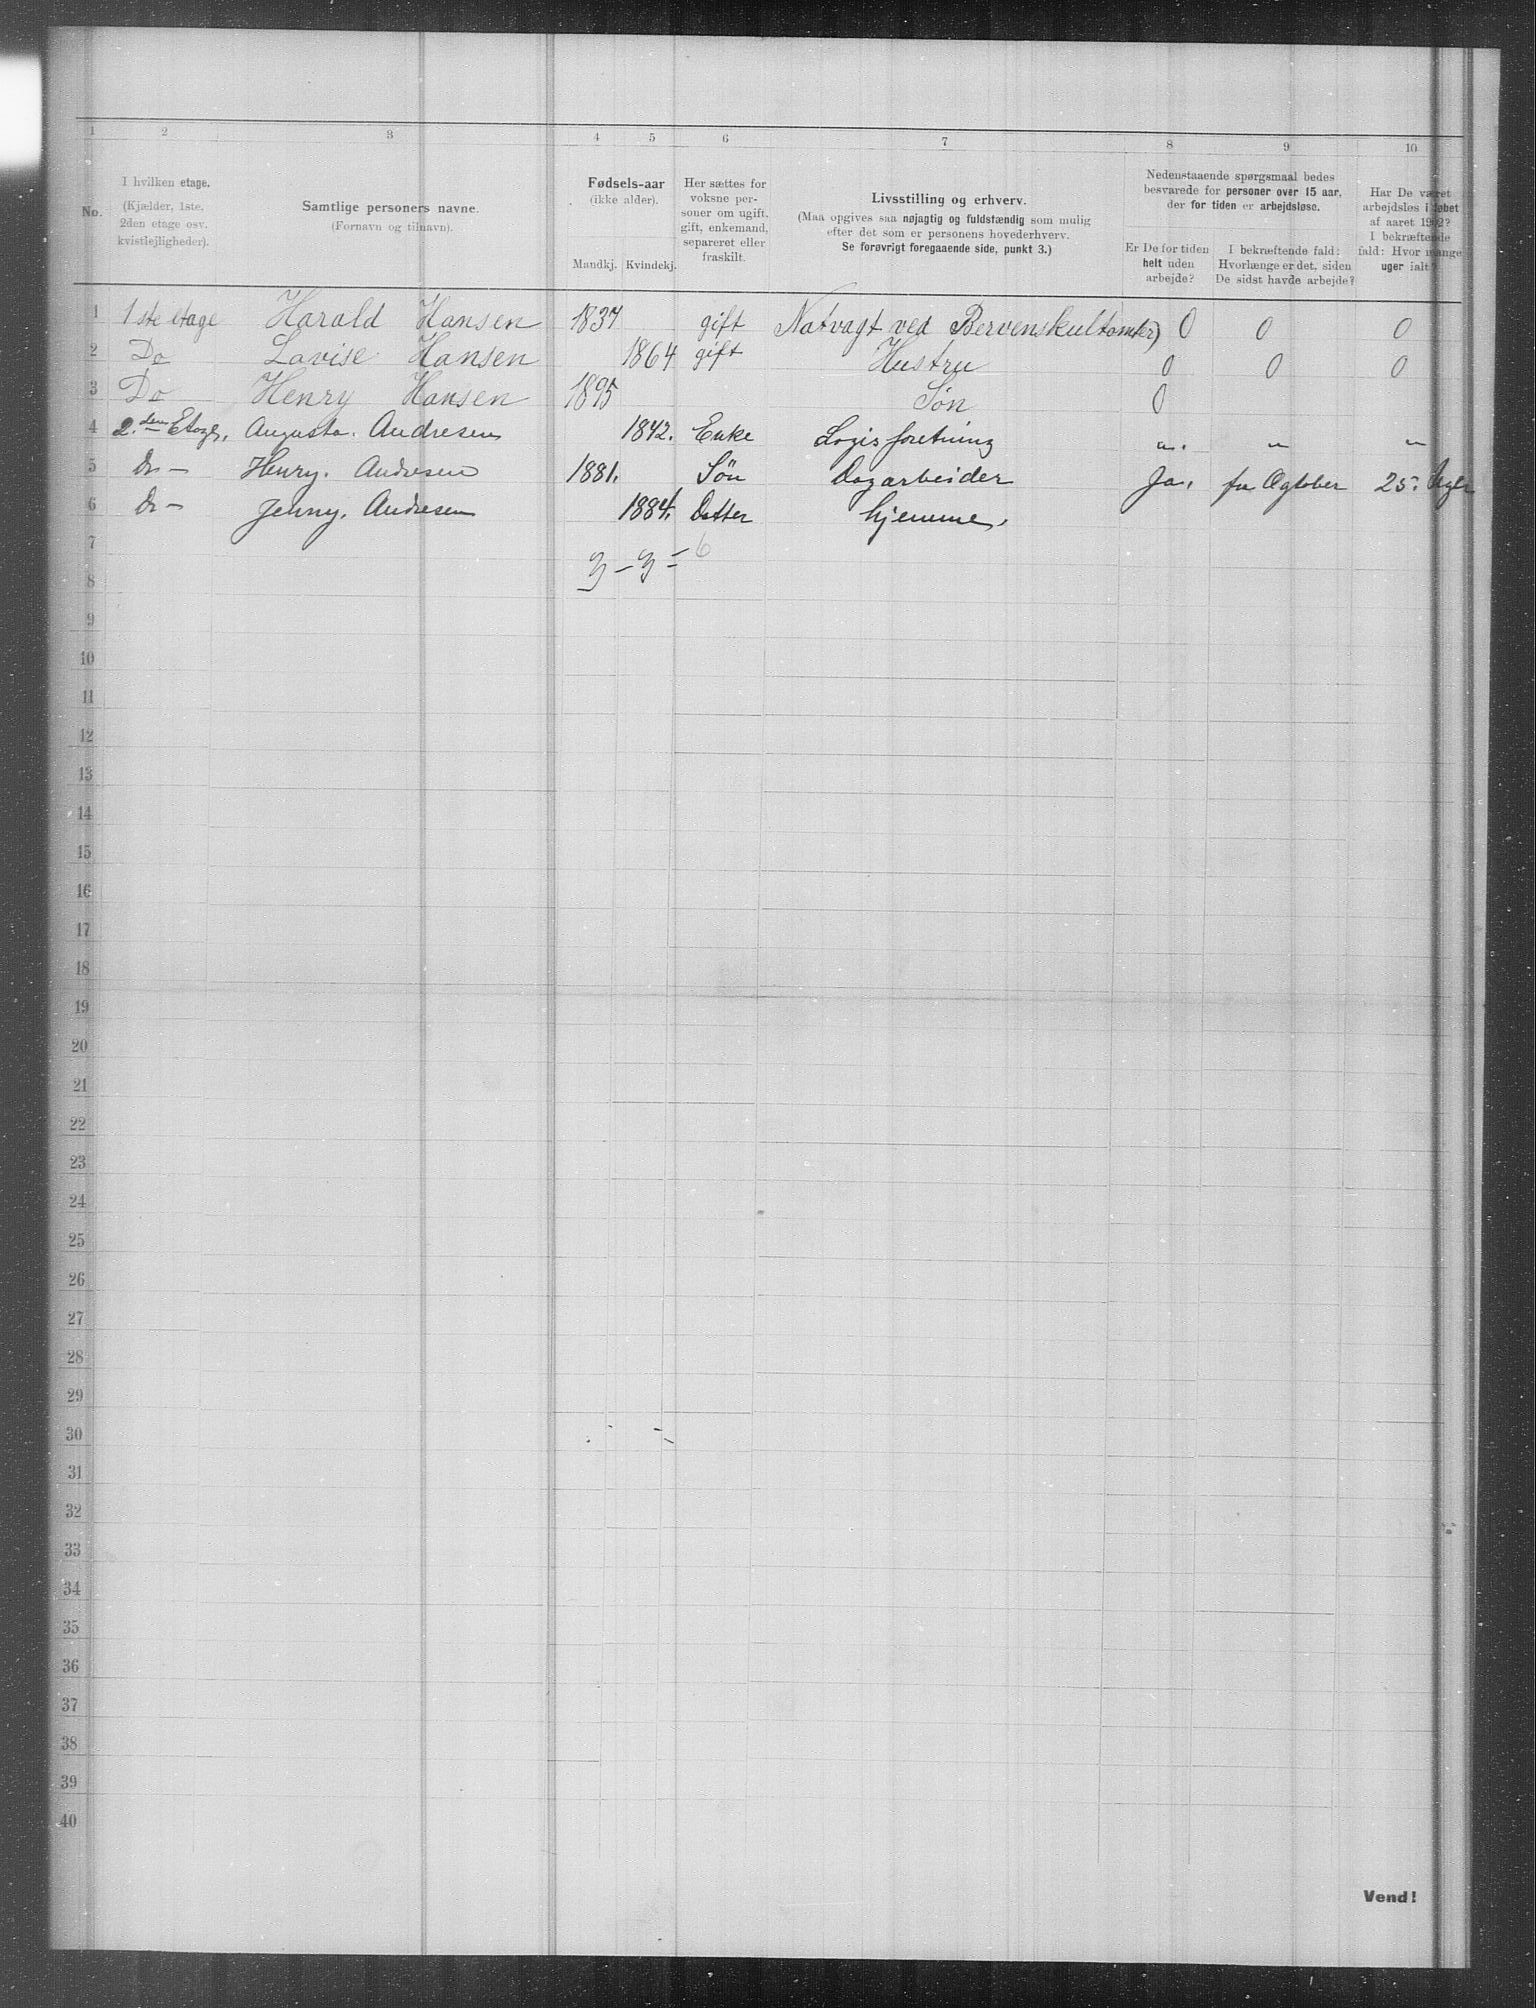 1 2 3 4 5 6 7 8 9 10
No.
I hvilken etage.
(Kjælder, 1ste.
2den etage osv.
kvistlejligheder).
Samtlige personers navne.
(Fornavn og tilnavn).
Fødsels-aar
(ikke alder).
Mandkj. Kvindekj.
Her sættes for
voksne per-
soner om ugift,
gift, enkemand,
separeret eller
fraskilt.
Livsstilling og erhverv.
(Maa opgives saa nøjagtig og fuldstændig som mulig
efter det som er personens hovederhverv.
Se forøvrigt foregaaende side, punkt 3.)
Nedenstaaende spørgsmaal bedes
besvarede for personer over 15 aar,
der for tiden er arbejdsløse.
Er De for tiden
helt uden
arbejde?
I bekræftende fald:
Hvorlænge er det, siden
De sidst havde arbejde?
Har De været
arbejdsløs i løbet
af aaret 1902?
I bekræftende
fald: Hvor mange
uger ialt?
1 1ste etage Harald Hansen 1837 gift Natvagt ved 0 0 0
2 Do Lovise Hansen 1864 gift Hustru 0 0 0
3 Do Henry Hansen 1895 Søn 0
4 2.den Etage, Augusta. Andresen 1842. Enke Logisforetning " " "
5 Do - Henry. Andresen 1881. Søn Dagarbeider Ja. fra Ogtober 25. Uger
6 Do - Jenny. Andresen 1884. Datter hjemme.
7
3 - 3 = 6
8
9
10
11
12
13
14
15
16
17
18
19
20
21
22
23
24
25
26
27
28
29
30
31
32
33
34
35
36
37
38
39
40
Vend!